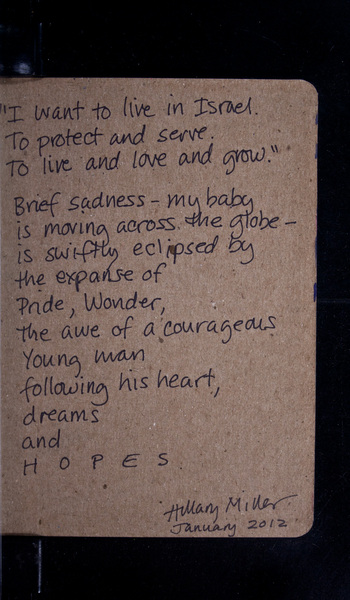 "I want to live in Israel.
To protect and serve.
To live and love and grow."
Brief sadness - my baby
is moving across the globe -
is swiftly eclipsed by
the expanse of
Pride, Wonder,
the awe of a courageous
Young man
following his heart,
dreams
and
H O P E S
Hillary Miller
January 2012